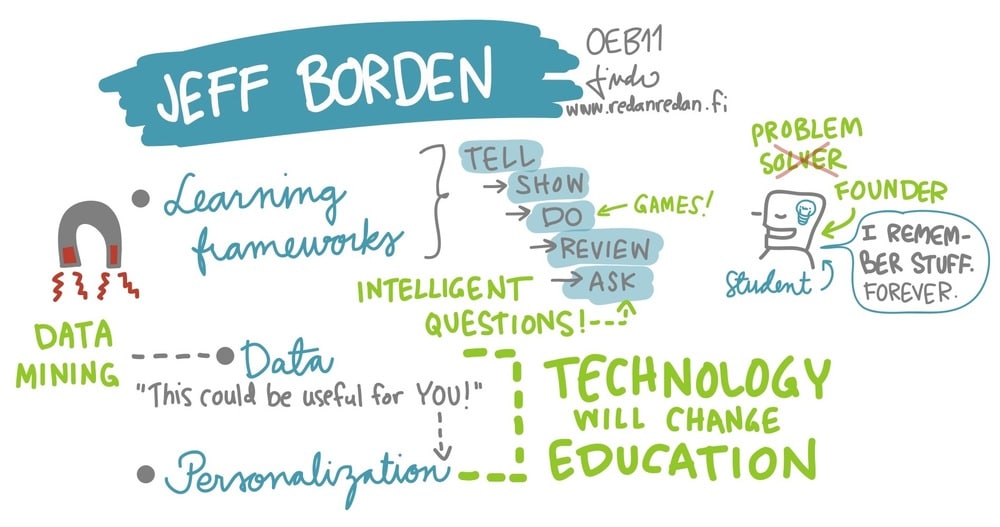 JEFF BORDEN
OEB11
www.redanredan.fi
Learning
frameworks
TELL
SHOW
DO
GAMES!
REVIEW
ASK
INTELLIGENT
QUESTIONS!
PROBLEM
SOLVER
FOUNDER
Student
I REMEM-
BER STUFF.
FOREVER.
DATA
MINING
Data
"This could be useful for YOU!"
Personalization
TECHNOLOGY
WILL CHANGE
EDUCATION